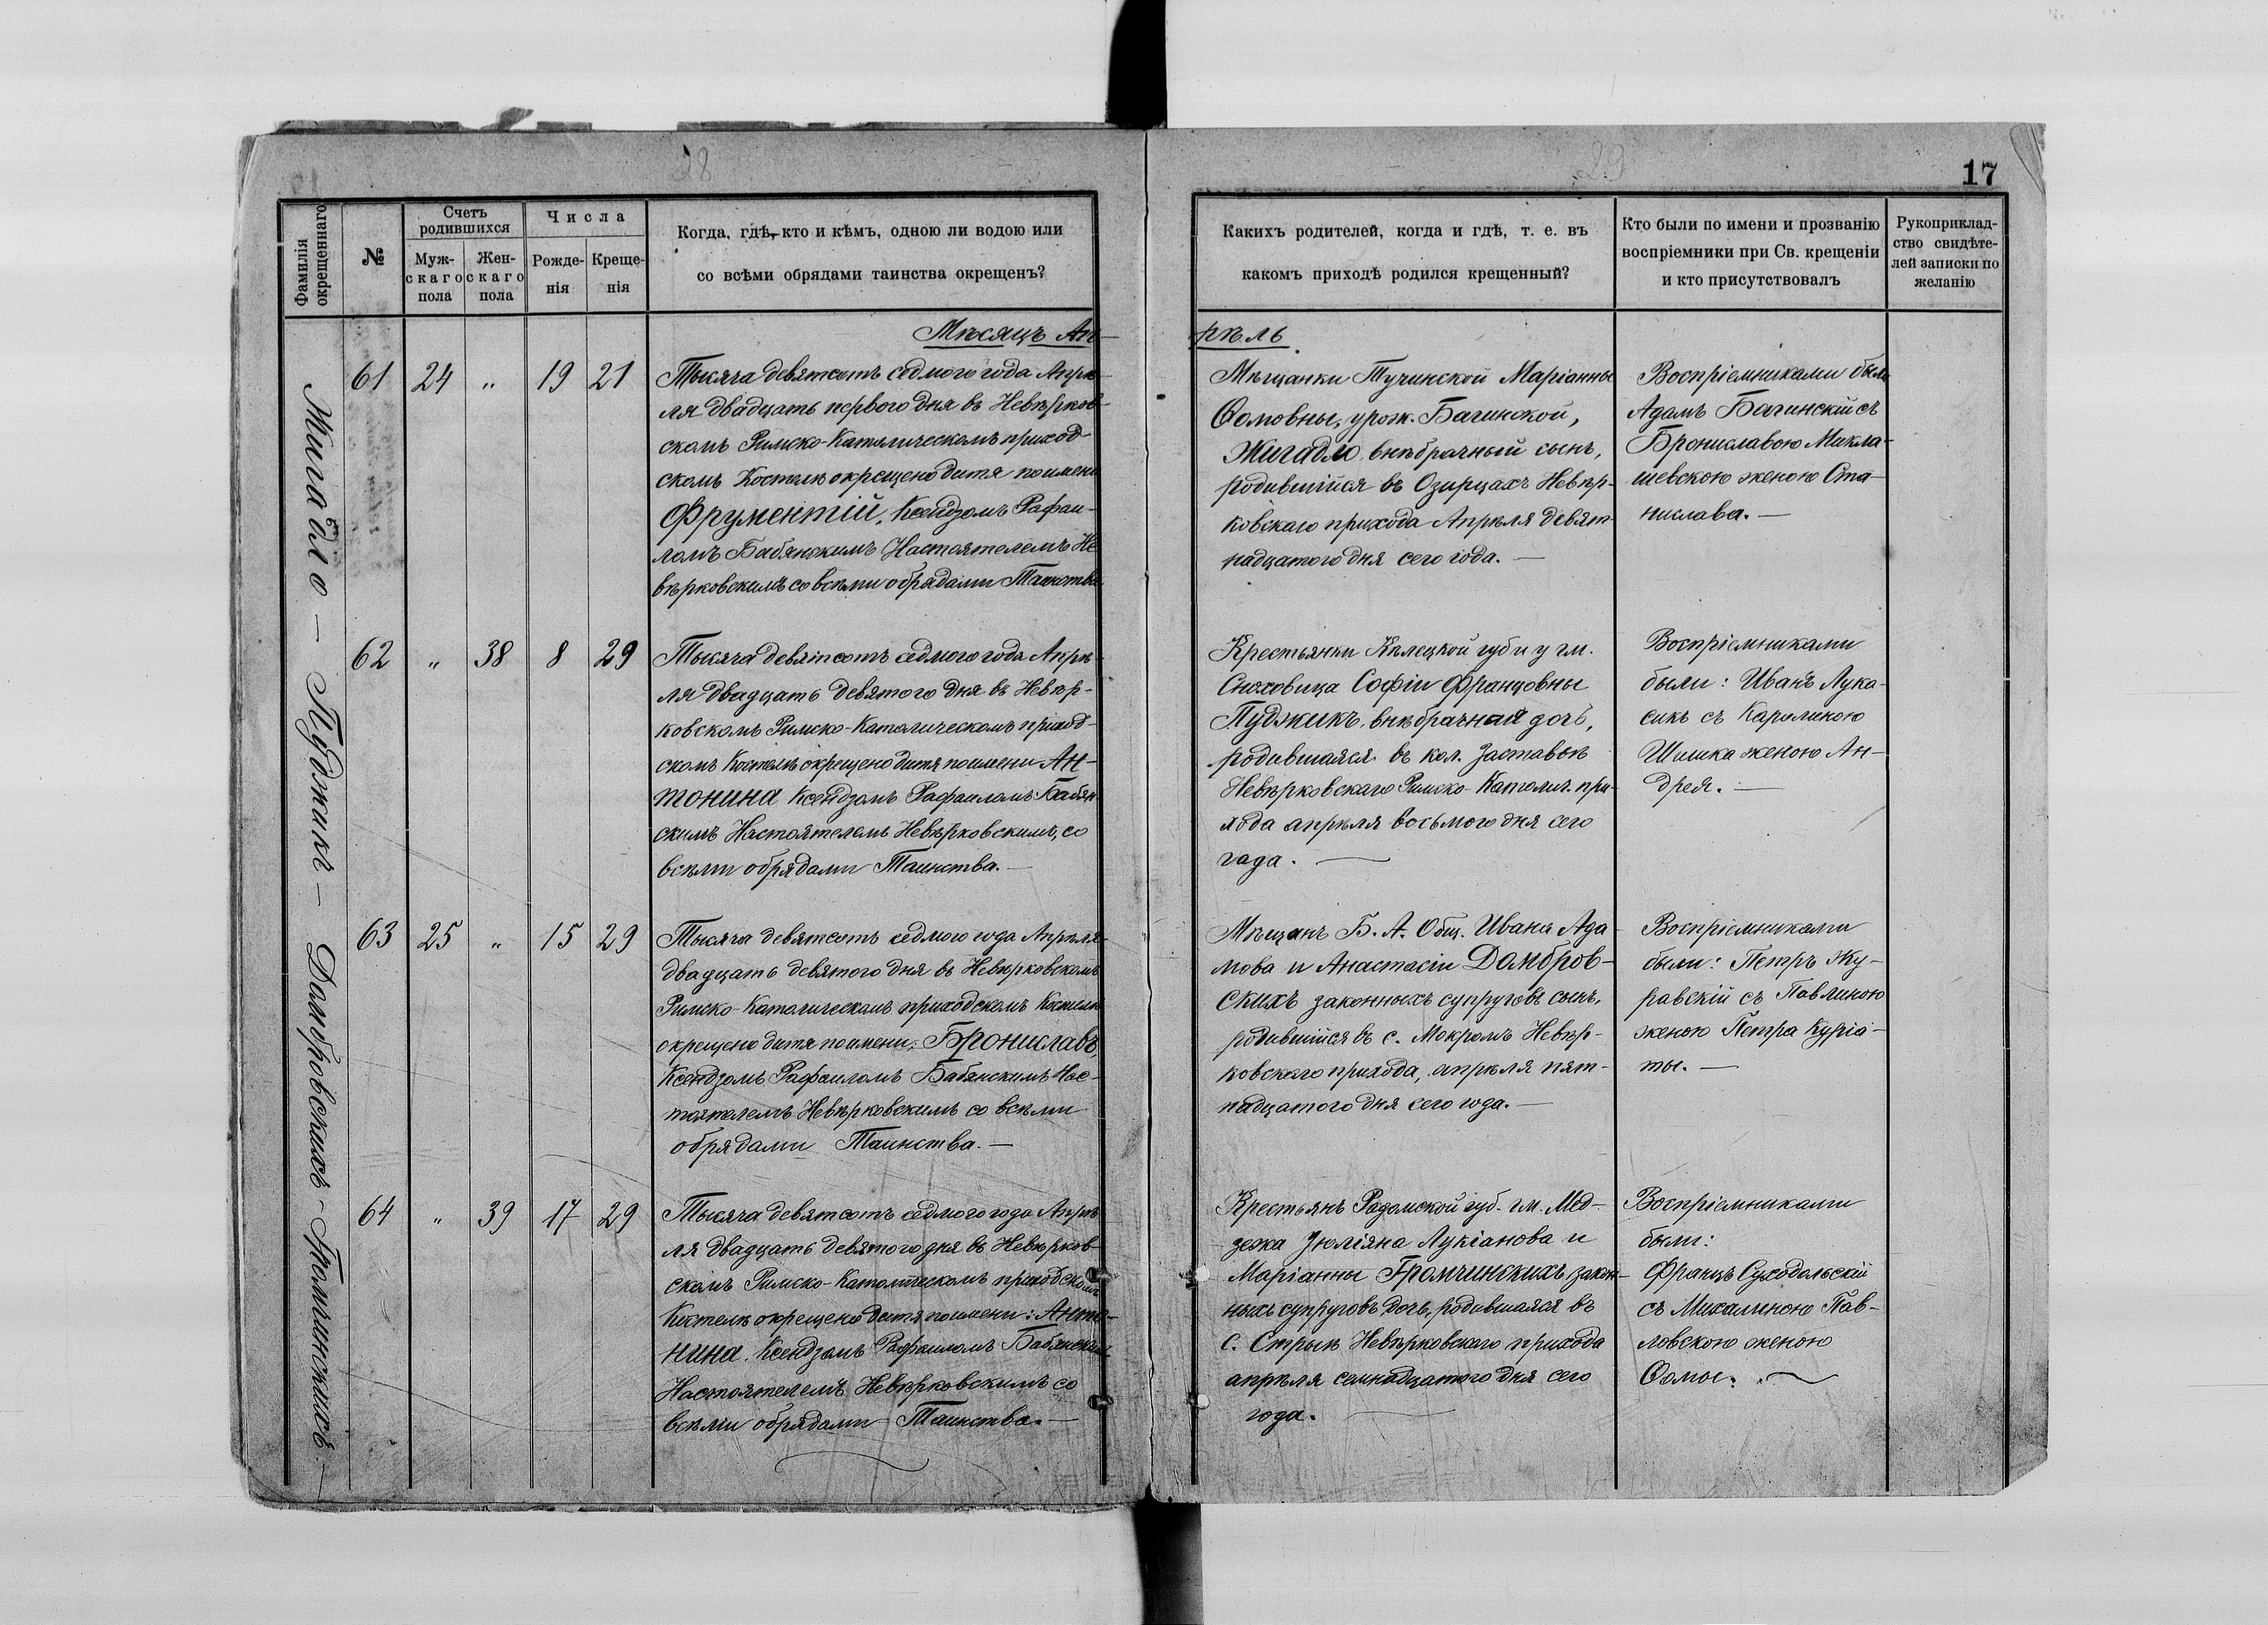 28
29
17
Фамилія окрещеннаго
№
Счетъ родившихся
Муж-скаго пола
Жен-скаго пола
Числа
Рожде-нія
Креще-нія
Когда, гдѣ, кто и кѣмъ, одною ли водою или
со всѣми обрядами таинства окрещенъ?
Какихъ родителей, когда и гдѣ, т. е. въ
какомъ приходѣ родился крещенный?
Кто были по имени и прозванію
воспріемники при Св. крещеніи
и кто присутствовалъ
Рукоприклад-
ство свидѣте-
лей записки по
желанію
Мѣсяцъ Ап-
рѣль
Жигадло – Пуджикъ – Домбровскихъ – Громчинскихъ. –
61 24 „ 19 21
Тысяча девятсотъ седмого года Апрѣ-
ля двадцать первого дня въ Невѣрков-
скомъ Римско-Католическомъ приход-
скомъ Костелѣ окрещено дитя по имени
Фрументій, Ксендзомъ Рафаи-
ломъ Бабянскимъ Настоятелемъ Не
вѣрковскимъ со всѣми обрядами Таинства
Мѣщанки Тучинской Маріанны
Ѳомовны, урож. Багинской,
Жигадло, внѣбрачный сынъ,
родившійся въ Озирцахъ Невѣр-
ковскаго прихода Апрѣля девят-
надцатого дня сего года. —
Воспріемниками были
Адамъ Багинскій съ
Брониславою Микла-
шевскою женою Ста-
нислава. —
62 „ 38 8 29
Тысяча девятсотъ седмого года Апрѣ-
ля двадцать девятого дня въ Невѣр-
ковскомъ Римско-Католическомъ приход-
скомъ Костелѣ окрещено дитя по имени Ан-
тонина Ксендзомъ Рафаиломъ Бабян-
скимъ Настоятелемъ Невѣрковскимъ, со
всѣми обрядами Таинства. —
Крестьянки Кѣлецкой губ и у гм.
Сноховица Софіи Францовны
Пуджикъ, внѣбрачная дочь,
родившаяся въ кол. Заставьѣ
Невѣрковскаго Римско-Католич. при-
хода апрѣля восьмого дня сего
года. —
Воспріемниками
были: Иванъ Лука-
сикъ съ Каролиною
Шишка женою Ан-
дрея. —
63 25 „ 15 29
Тысяча девятсотъ седмого года Апрѣля
двадцать девятого дня въ Невѣрковскомъ
Римско-Католическомъ приходскомъ Костелѣ
окрещено дитя по имени: Брониславъ,
Ксендзомъ Рафаиломъ Бабянскимъ Нас-
тоятелемъ Невѣрковскимъ со всѣми
обрядами Таинства. —
Мѣщанъ Б. А. Общ. Ивана Ада-
мова и Анастасіи Домбров-
скихъ законныхъ супруговъ сынъ,
родившійся въ с. Мокромъ Невѣр-
ковскаго прихода, апрѣля пят-
надцатого дня сего года. —
Воспріемниками
были: Петръ Жу-
равскій съ Павлиною
женою Петра Куріа-
ты. —
64 „ 39 17 29
Тысяча девятсотъ седмого года Апрѣ
ля двадцать девятого дня въ Невѣрков-
скомъ Римско-Католическомъ приходскомъ
Костелѣ окрещено дитя по имени: Анто-
нина. Ксендзомъ Рафаиломъ Бабянскимъ
Настоятелемъ Невѣрковскимъ со
всѣми обрядами Таинства. —
Крестьянъ Радомской губ. гм. Мѣд-
зежа Юліяна Лукіанова и
Маріанны Громчинскихъ закон-
ныхъ супруговъ дочь, родившаяся въ
с. Стрыѣ Невѣрковского прихода
апрѣля семнадцатого дня сего
года. —
Воспріемниками
были:
Францъ Суходольскій
съ Михалиною Пав-
ловскою женою
Ѳомы. —